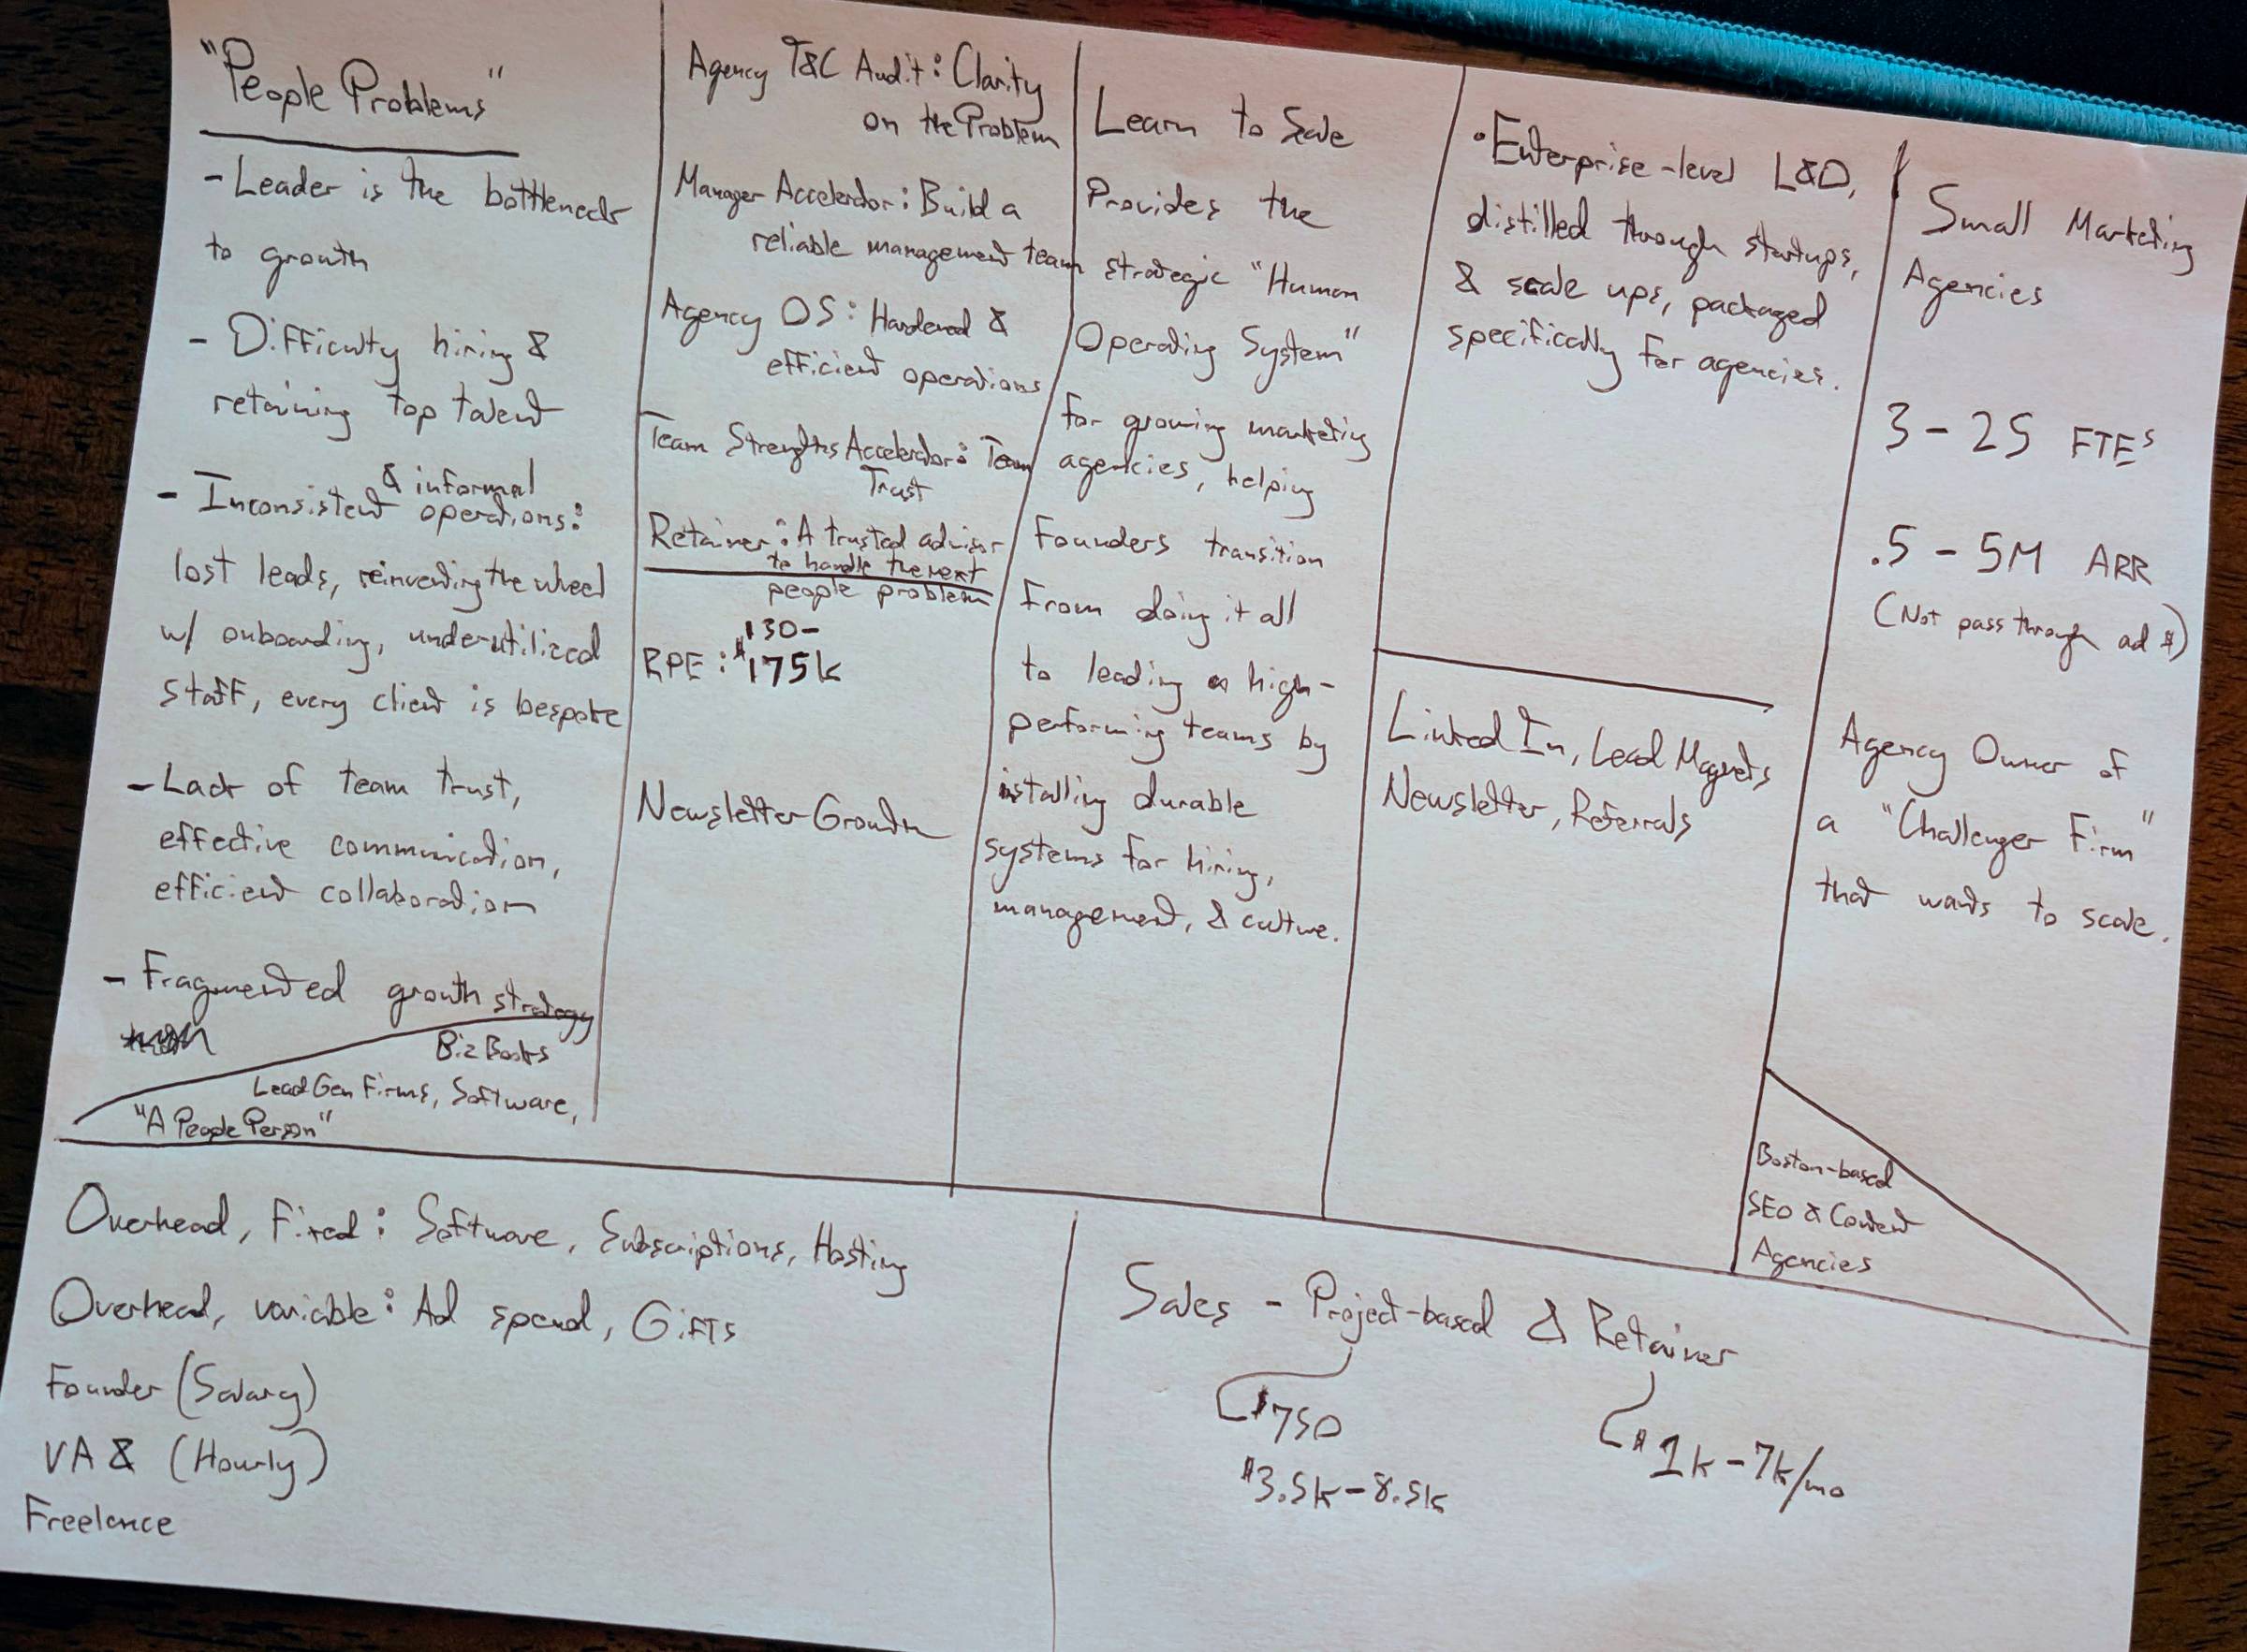 "People Problems"
- Leader is the bottleneck
to growth
- Difficulty hiring &
retaining top talent
& informal
- Inconsistent operations:
lost leads, reinventing the wheel
w/ onboarding, underutilized
staff, every client is bespoke
- Lack of team trust,
effective communication,
efficient collaboration
- Fragmented growth strategy
Biz Books
Lead Gen Firms, Software,
"A People Person"
Agency T&C Audit: Clarity
on the Problem
Manager Accelerator: Build a
reliable management team
Agency OS: Hardened &
efficient operations
Team Strengths Accelerator: Team
Trust
Retainer: A trusted advisor
to handle the next
people problem
$130-
RPE: 175k
Newsletter Growth
Learn to Scale
Provides the
strategic "Human
Operating System"
for growing marketing
agencies, helping
Founders transition
from doing it all
to leading a high-
performing teams by
istalling durable
systems for hiring,
management, & culture.
• Enterprise-level L&D,
distilled through startups,
& scale ups, packaged
specifically for agencies.
LinkedIn, Lead Magnets
Newsletter, Referrals
Small Marketing
Agencies
3-25 FTEs
.5-5M ARR
(Not pass through ad $)
Agency Owner of
a "Challenger Firm"
that wants to scale.
Boston-based
SEO & Content
Agencies
Overhead, Fixed: Software, Subscriptions, Hosting
Overhead, variable: Ad spend, Gifts
Founder (Salary)
VA & (Hourly)
Freelance
Sales - Project-based & Retainer
$750
$3.5k-8.5k
$1k-7k/mo